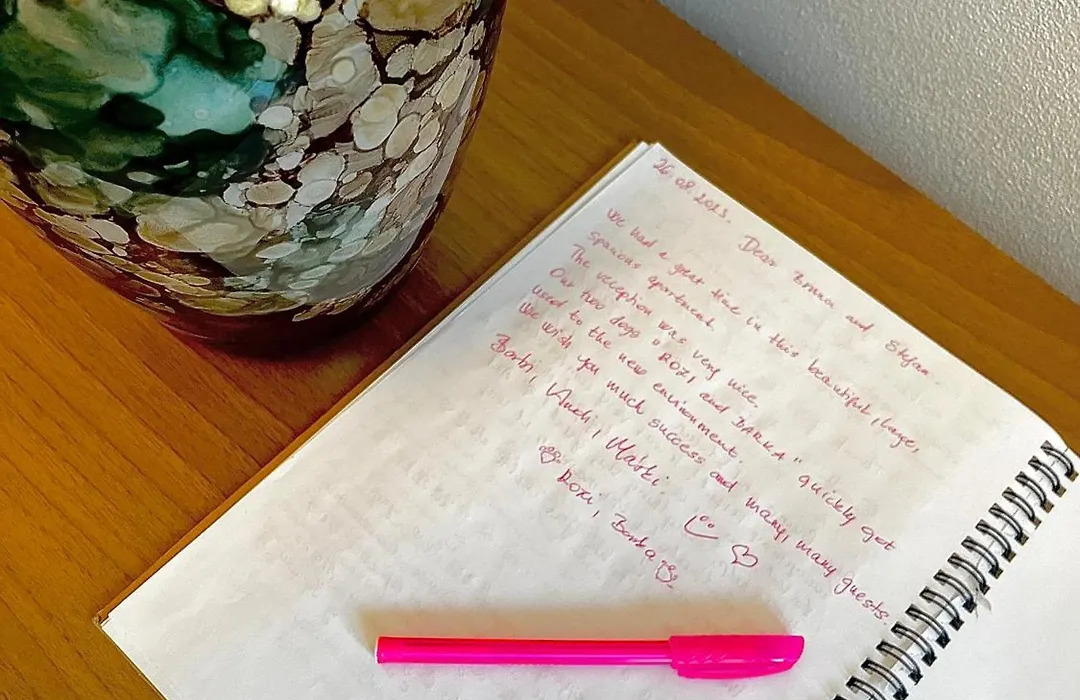 26.08.2023.
Dear and Stefan
We had a great time in this beautiful, large,
spacious apartment.
The reception was very nice.
Our two dogs "ROZI and BARKA" quickly get
used to the new environment.
We wish you much success and many, many guests.
Barbi, Andi, Matki
Rozi, Barka